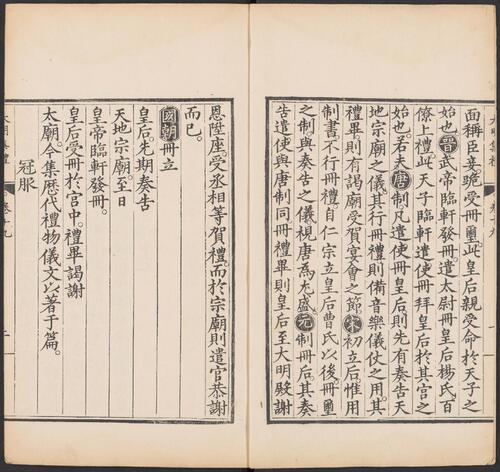 面稱臣妾跪受冊璽此皇后親受命於天子之
始也晉武帝臨軒發冊遣太尉冊皇后楊氏百
僚上禮此天子臨軒遣使冊拜皇后於其宮之
始也。若夫唐制凡遣使冊皇后則先有奏告天
地宗廟之儀其行冊禮則備音樂儀仗之用。其
禮畢則有謁廟受賀宴會之節宋初立后惟用
制書。不行冊禮自仁宗立皇后曹氏以後。冊璽
之制與奏告之儀視唐爲尤盛元制冊后。其奏
告遣使與唐制同冊禮畢則皇后至大明殿謝
恩陞座。受丞相等賀禮。而於宗廟則遣官恭謝
而已。
國朝冊立
皇后。先期奏告
天地宗廟。至日
皇帝臨軒發冊。
皇后受冊於宮中。禮畢謁謝
太廟。今集歷代禮物儀文以著于篇。
冠服
卷十九
二